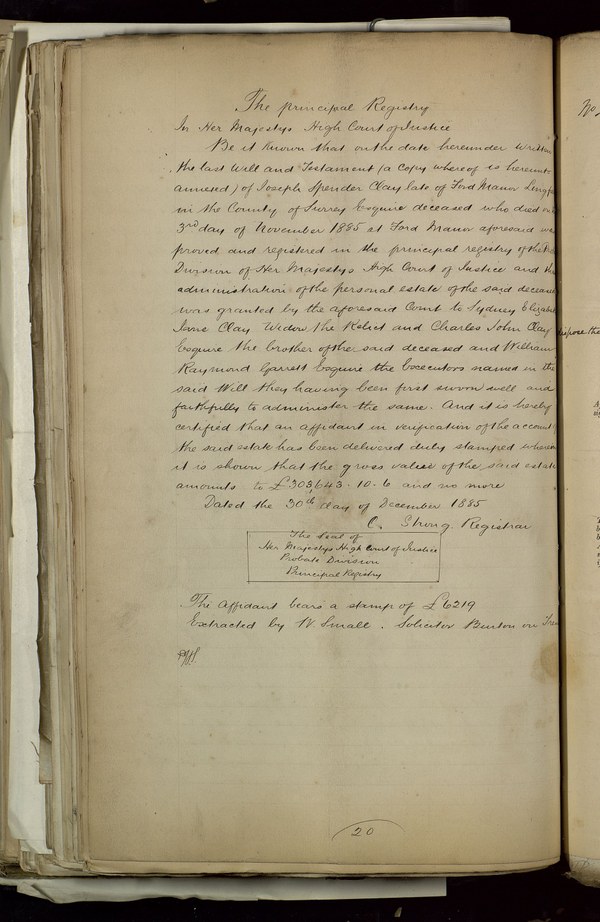 The principal Registry
In Her Majestys High Court of Justice
Be it Known that on the date hereunder written
the last Will and Testament (a copy whereof is hereunto
annexed) of Joseph Spender Clay late of Ford Manor
in the County of Surrey Esquire deceased who died on
3rd day of November 1885 at Ford Manor aforesaid
proved and registered in the principal registry of the
Division of Her Majestys High Court of Justice and the
administration of the personal estate of the said deceased
was granted by the aforesaid Court to Sydney Elizabeth
Jane Clay Widow the Relict and Charles John Clay
Esquire the brother of the said deceased and William
Raymond Garrett Esquire the Executors named in the
said Will they having been first sworn well and
faithfully to administer the same. And it is hereby
certified that an affidavit in verification of the account
the said estate has been delivered duly stamped wherein
it is shown that the gross value of the said estate
amounts to £303,643.10.6 and no more
Dated the 30th day of December 1885
C. Strong Registrar
The Seal of
Her Majestys High Court of Justice
Probate Division
Principal Registry
The Affidavit bears a stamp of £6219
Extracted by W. Small. Solicitor Burton on
20
No.
dispose the